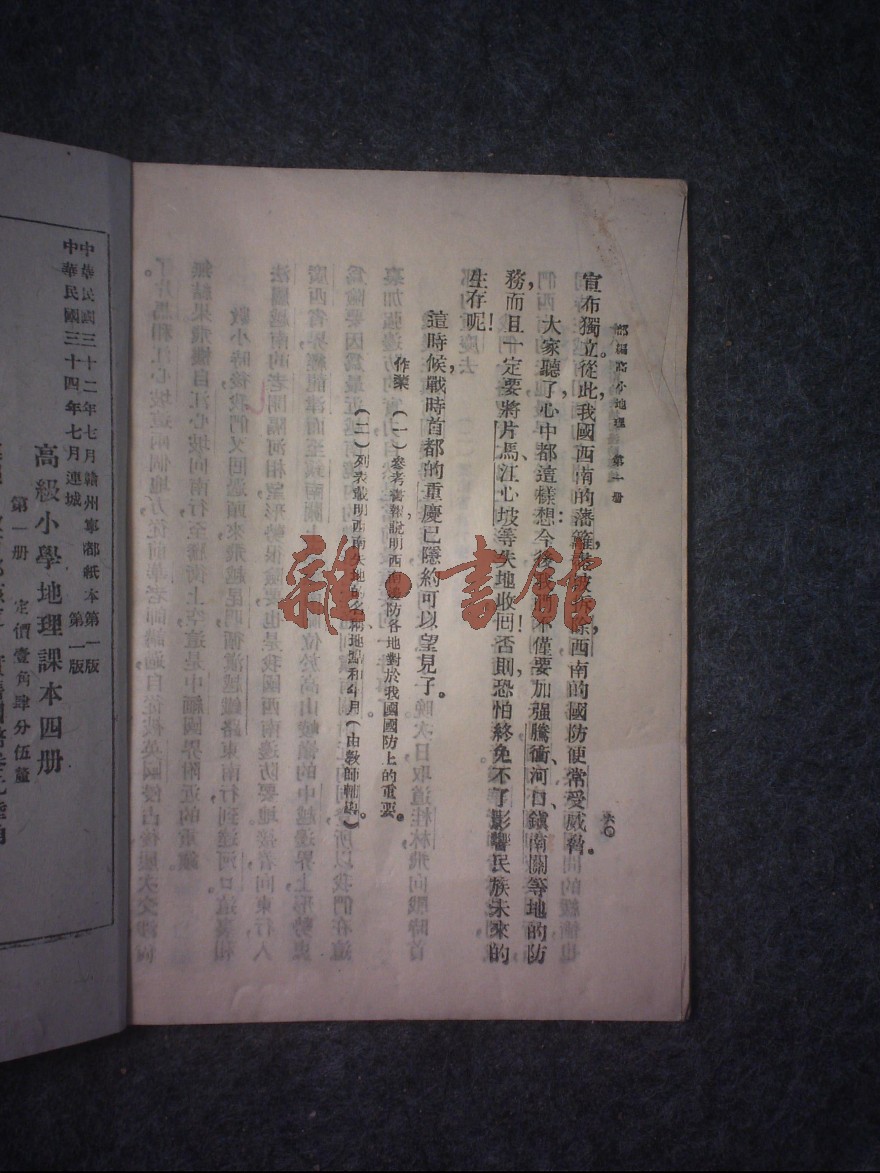 部編高小地理 第一冊
六〇
宣布獨立。從此，我國西南的藩籬，被拆除，西南的國防便常受威脅。
大家聽了，心中都這樣想：今後不僅要加强騰衝、河口、鎮南關等地的防
務，而且一定要將片馬、江心坡等失地收回！否則，恐怕終免不了影響民族未來的
生存呢！
這時候，戰時首都的重慶，已隱約可以望見了。
作業 （一）參考書報，說明西南邊防各地對於我國國防上的重要。
（二）列表載明西南失地的名稱、地點和年月。（由教師輔導）
雜·書館
中華民國三十二年七月贛州寧都紙本第一版
中華民國三十四年七月連城 第一版
高級小學地理課本四册
第一册 定價壹角肆分伍釐